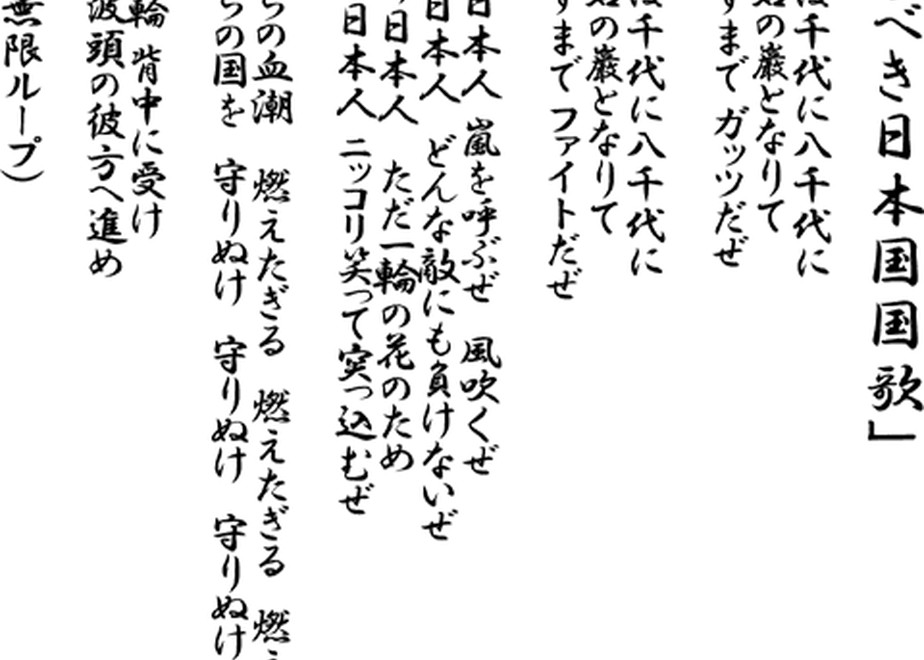 べき日本国国歌」
千代に八千代に
の巌となりて
すまで ガッツだぜ
千代に八千代に
の巌となりて
すまで ファイトだぜ
日本人 嵐を呼ぶぜ 風吹くぜ
日本人 どんな敵にも負けないぜ
日本人 ただ一輪の花のため
日本人 ニッコリ笑って突っ込むぜ
らの血潮 燃えたぎる 燃えたぎる 燃え
らの国を 守りぬけ 守りぬけ 守りぬけ
輪 背中に受け
波頭の彼方へ進め
無限ループ)